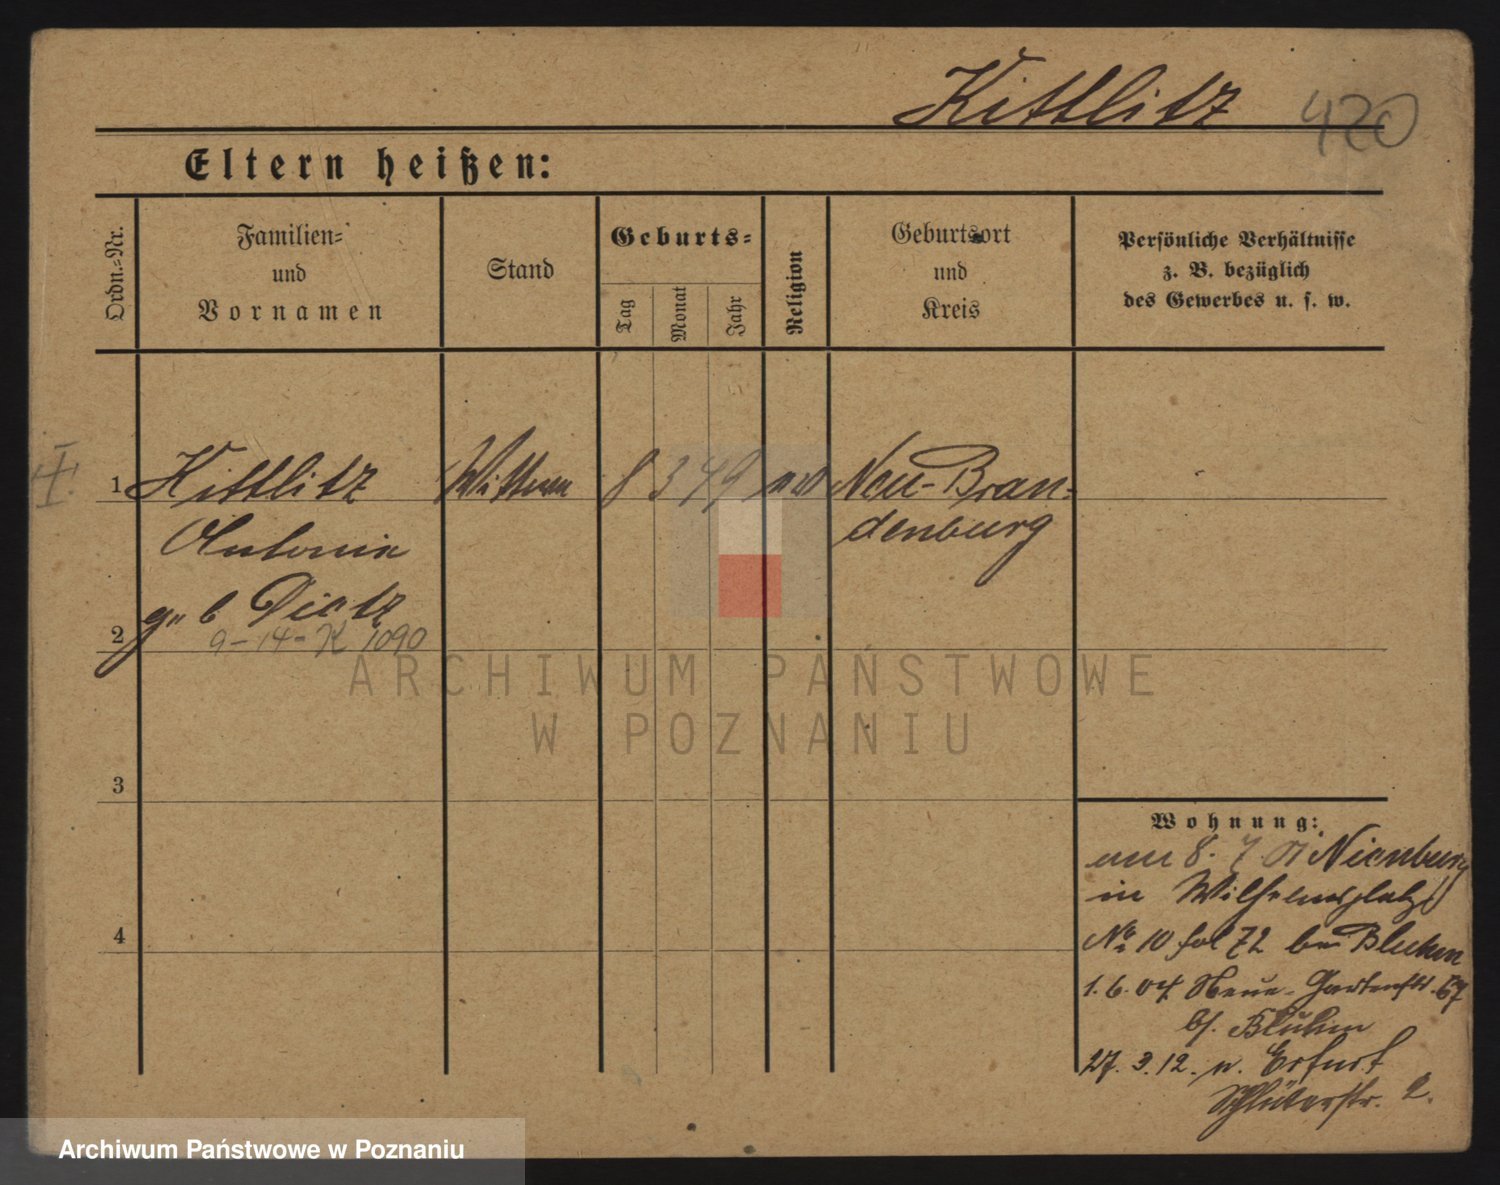 Kittlitz 420
Eltern heißen:
Ordn.-Nr.
Familien-
und
Vornamen
Stand
Geburts-
Tag
Monat
Jahr
Religion
Geburtsort
und
Kreis
Persönliche Verhältnisse
z. B. bezüglich
des Gewerbes u. s. w.
I.
1 Kittlitz Wittwe 8 3 49 Neu-Bran-
Antonie denburg
geb Dietz
2 9-14-K 1090
ARCHIWUM PAŃSTWOWE
W POZNANIU
3
4
Wohnung:
am 8. 7. 01 Nienburg
in Wilhelmsplatz
No 10 fol 72 bei Bluhm
1. 6. 04 Neue-Gartenstr. 67
bf. Bluhm
27. 3. 12. n. Erfurt
Schlüterstr. 2.
Archiwum Państwowe w Poznaniu